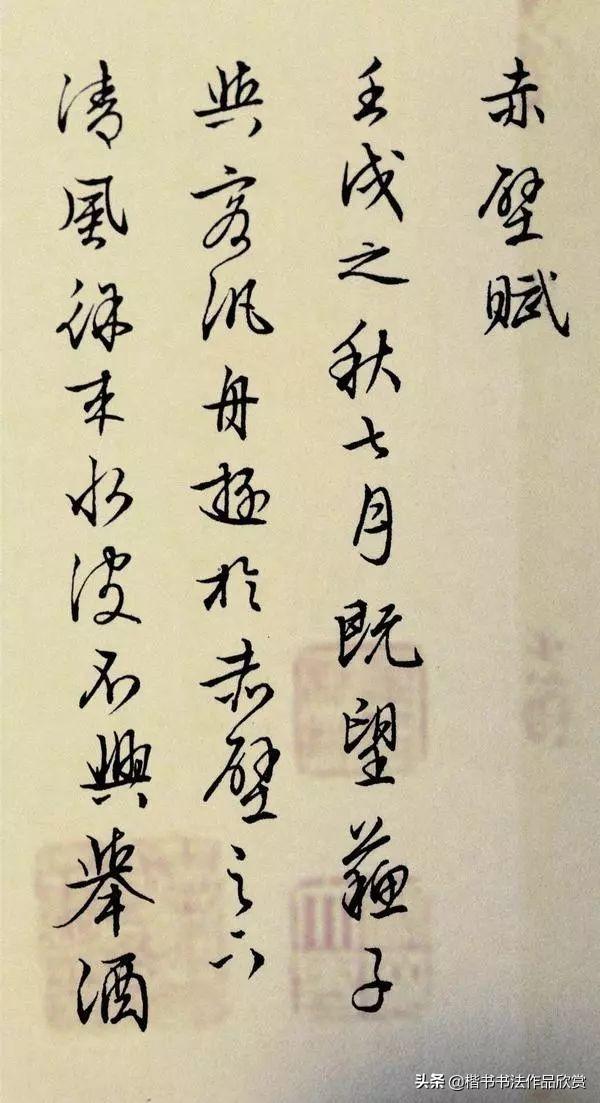 赤壁賦
壬戌之秋七月既望蘇子
與客汎舟遊於赤壁之下
清風徐來水波不興舉酒
头条 @楷书书法作品欣赏